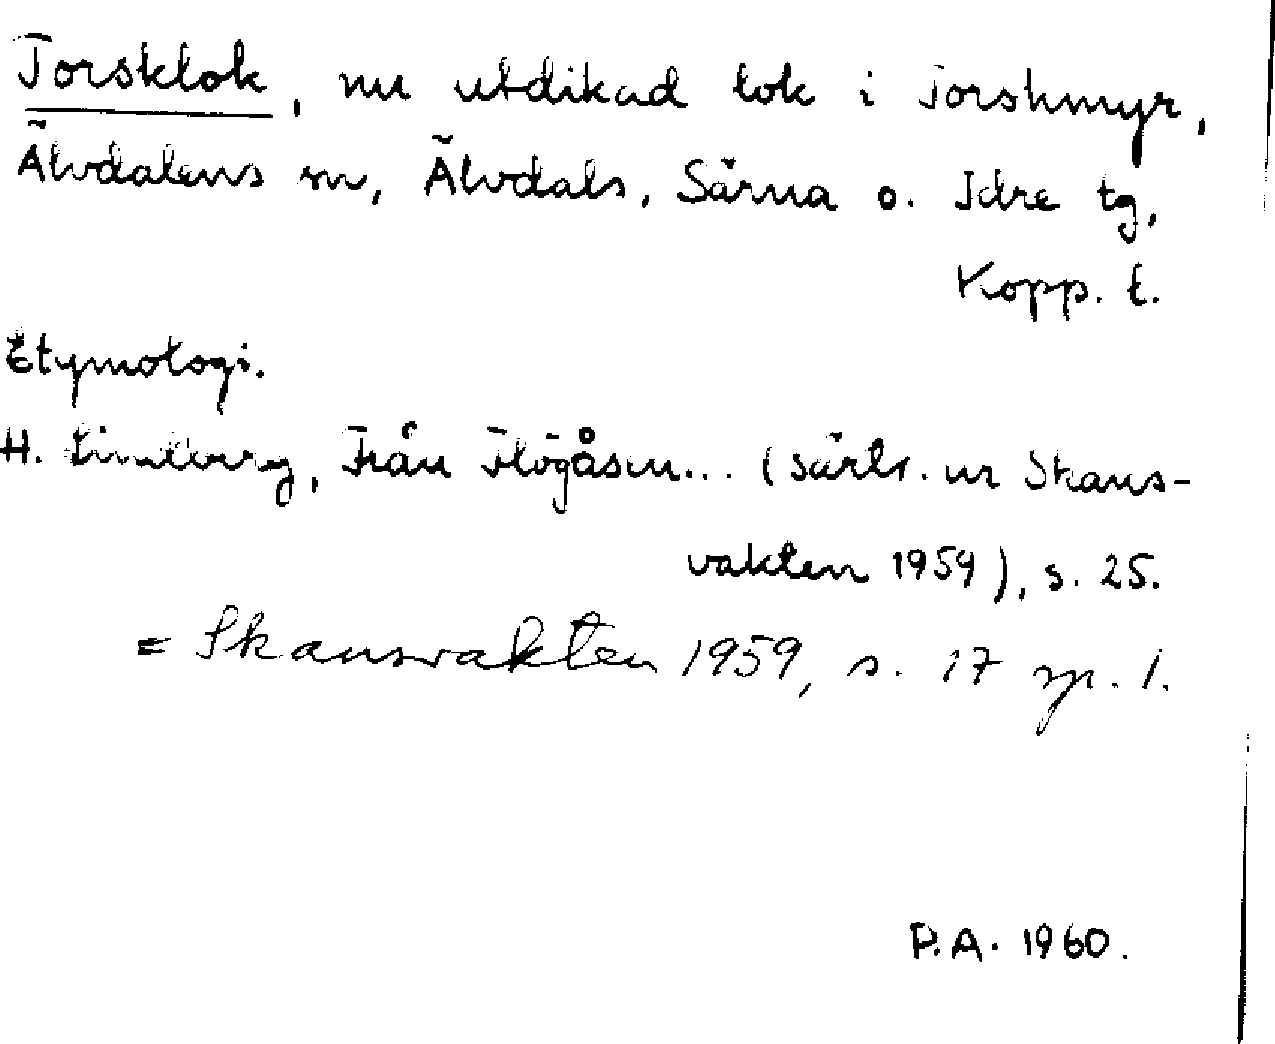 Torsklok, nu utdikad lok i Torskmyr,
Älvdalens sn, Älvdals, Särna o. Idre tg,
Kopp. l.
Etymologi.
H. Lindberg, Från Flögåsen... (särtr. ur Skans-
vakten 1959), s. 25.
= Skansvakten 1959, s. 17 sp. 1.
P.A. 1960.